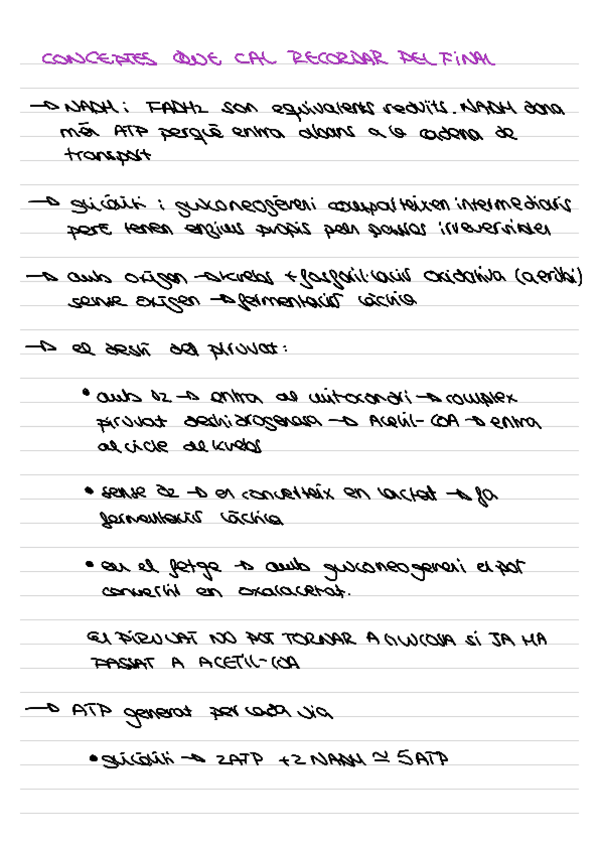 CONCEPTES QUE CAL RECORDAR DEL FINAL
→ NADH i FADH2 són equivalents reduïts. NADH dona
més ATP perquè entra abans a la cadena de
transport
→ glicòlisi i gluconeogènesi comparteixen intermediaris
però tenen enzims propis pels passos irreversibles
→ amb oxigen → krebs + fosforil·lació oxidativa (aeròbi)
sense oxigen → fermentació làctica
→ el destí del piruvat:
• amb O2 → entra al mitocondri → complex
piruvat deshidrogenasa → Acetil-COA → entra
al cicle de krebs
• sense O2 → es converteix en lactat → fa
fermentació làctica
• en el fetge → amb gluconeogenesi el pot
convertir en oxalacetat.
EL PIRUVAT NO POT TORNAR A GLUCOSA SI JA HA
PASSAT A ACETIL-COA
→ ATP generat per cada via
• glicòlisi → 2ATP + 2 NADH ≃ 5ATP